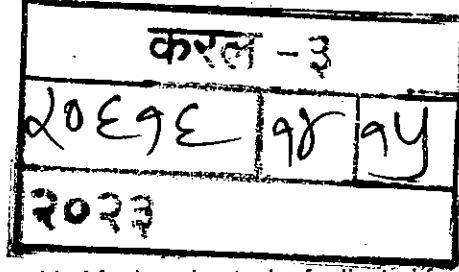 करल - ३
२०६१६ १४ १५
२०२३